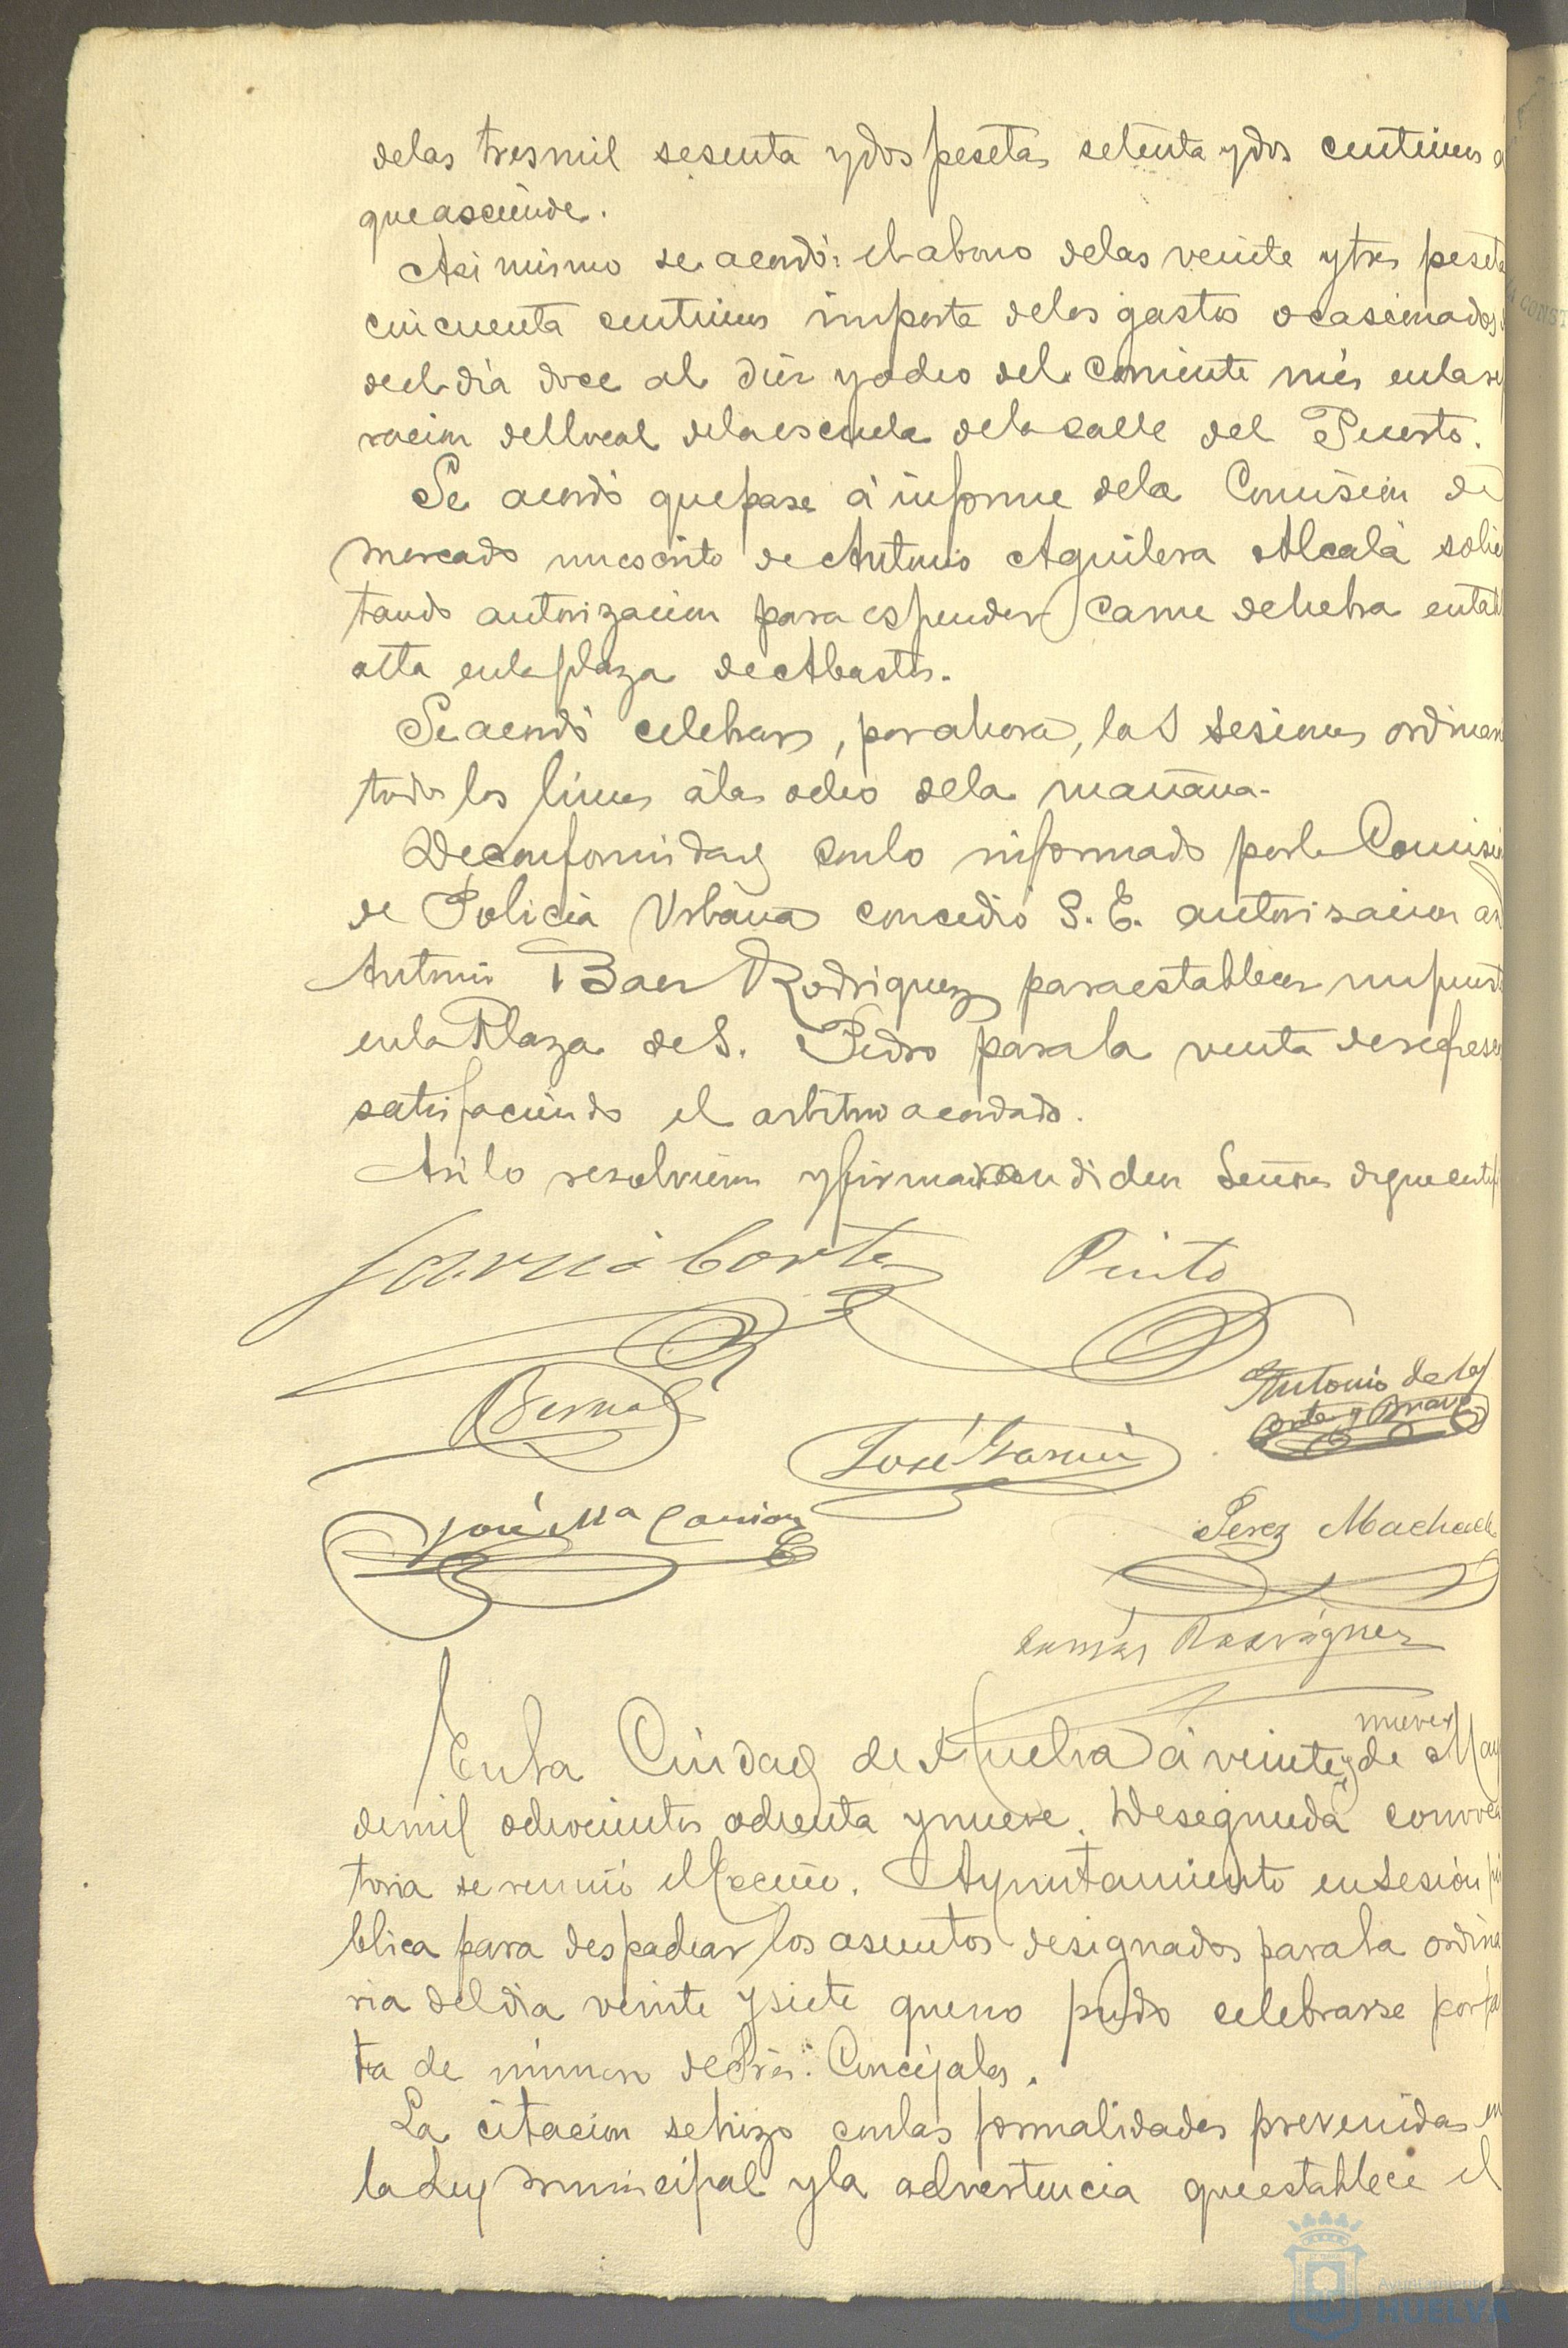 delas tresmil sesenta y dos pesetas setenta y dos centimos a
que asciende.
Asi mismo se acordó: el abono delas veinte y tres peseta
cincuenta centimos importe delos gastos ocasionados
del dia doce al diez y ocho del corriente mes en la re
racion dellocal dela escuela dela calle del Puerto.
Se acordó que pase á informe dela Comision de
mercado un escrito de Antonio Aguilera Alcalá solici
tando autorizacion para espender carne de hebra en tabl
atta en la plaza de Abastos.
Se acordó celebrar, por ahora, las sesiones ordinari
todos los lunes á las ocho dela mañana.
De conformidad con lo informado por la Comisio
de Policia Urbana concedió S. E. autorisacion á
Antonio Baer Rodriguez para establecer un puest
en la Plaza de S. Pedro para la venta de refresco
satisfaciendo el arbitrio acordado.
Asi lo resolvieron y firmaron dichos Señores de que certifi
Garcia Cortes Pinto
Bernal
José Garcia
Antonio de la
Corte y Bravo
José Mª Carrion
Perez Machado
Tomás Rodríguez
En la Ciudad de Huelva á veinte y nueve de May
de mil ochocientos ochenta y nueve. De segunda convoca
toria se reunió el Excmo. Ayuntamiento en sesion pú
blica para despachar los asuntos designados para la ordina
ria del dia veinte y siete que no pudo celebrarse por fal
ta de número de Sres. Concejales.
La citacion se hizo con las formalidades prevenidas en
la Ley municipal y la advertencia que establece el
HUELVA